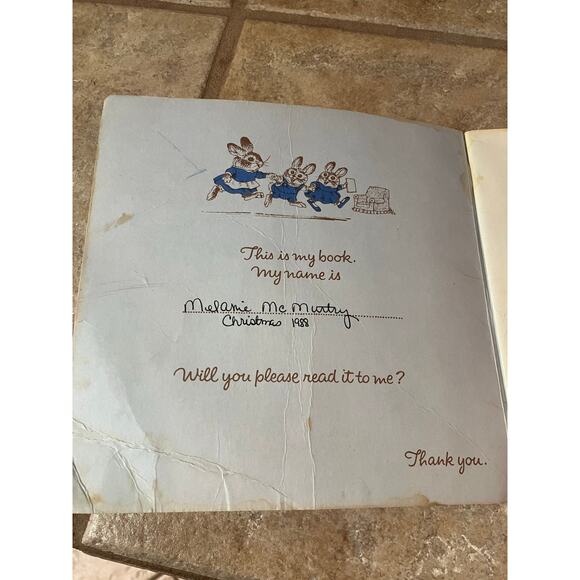 This is my book.
My name is
Melanie McMurtry
Christmas 1988
Will you please read it to me?
Thank you.